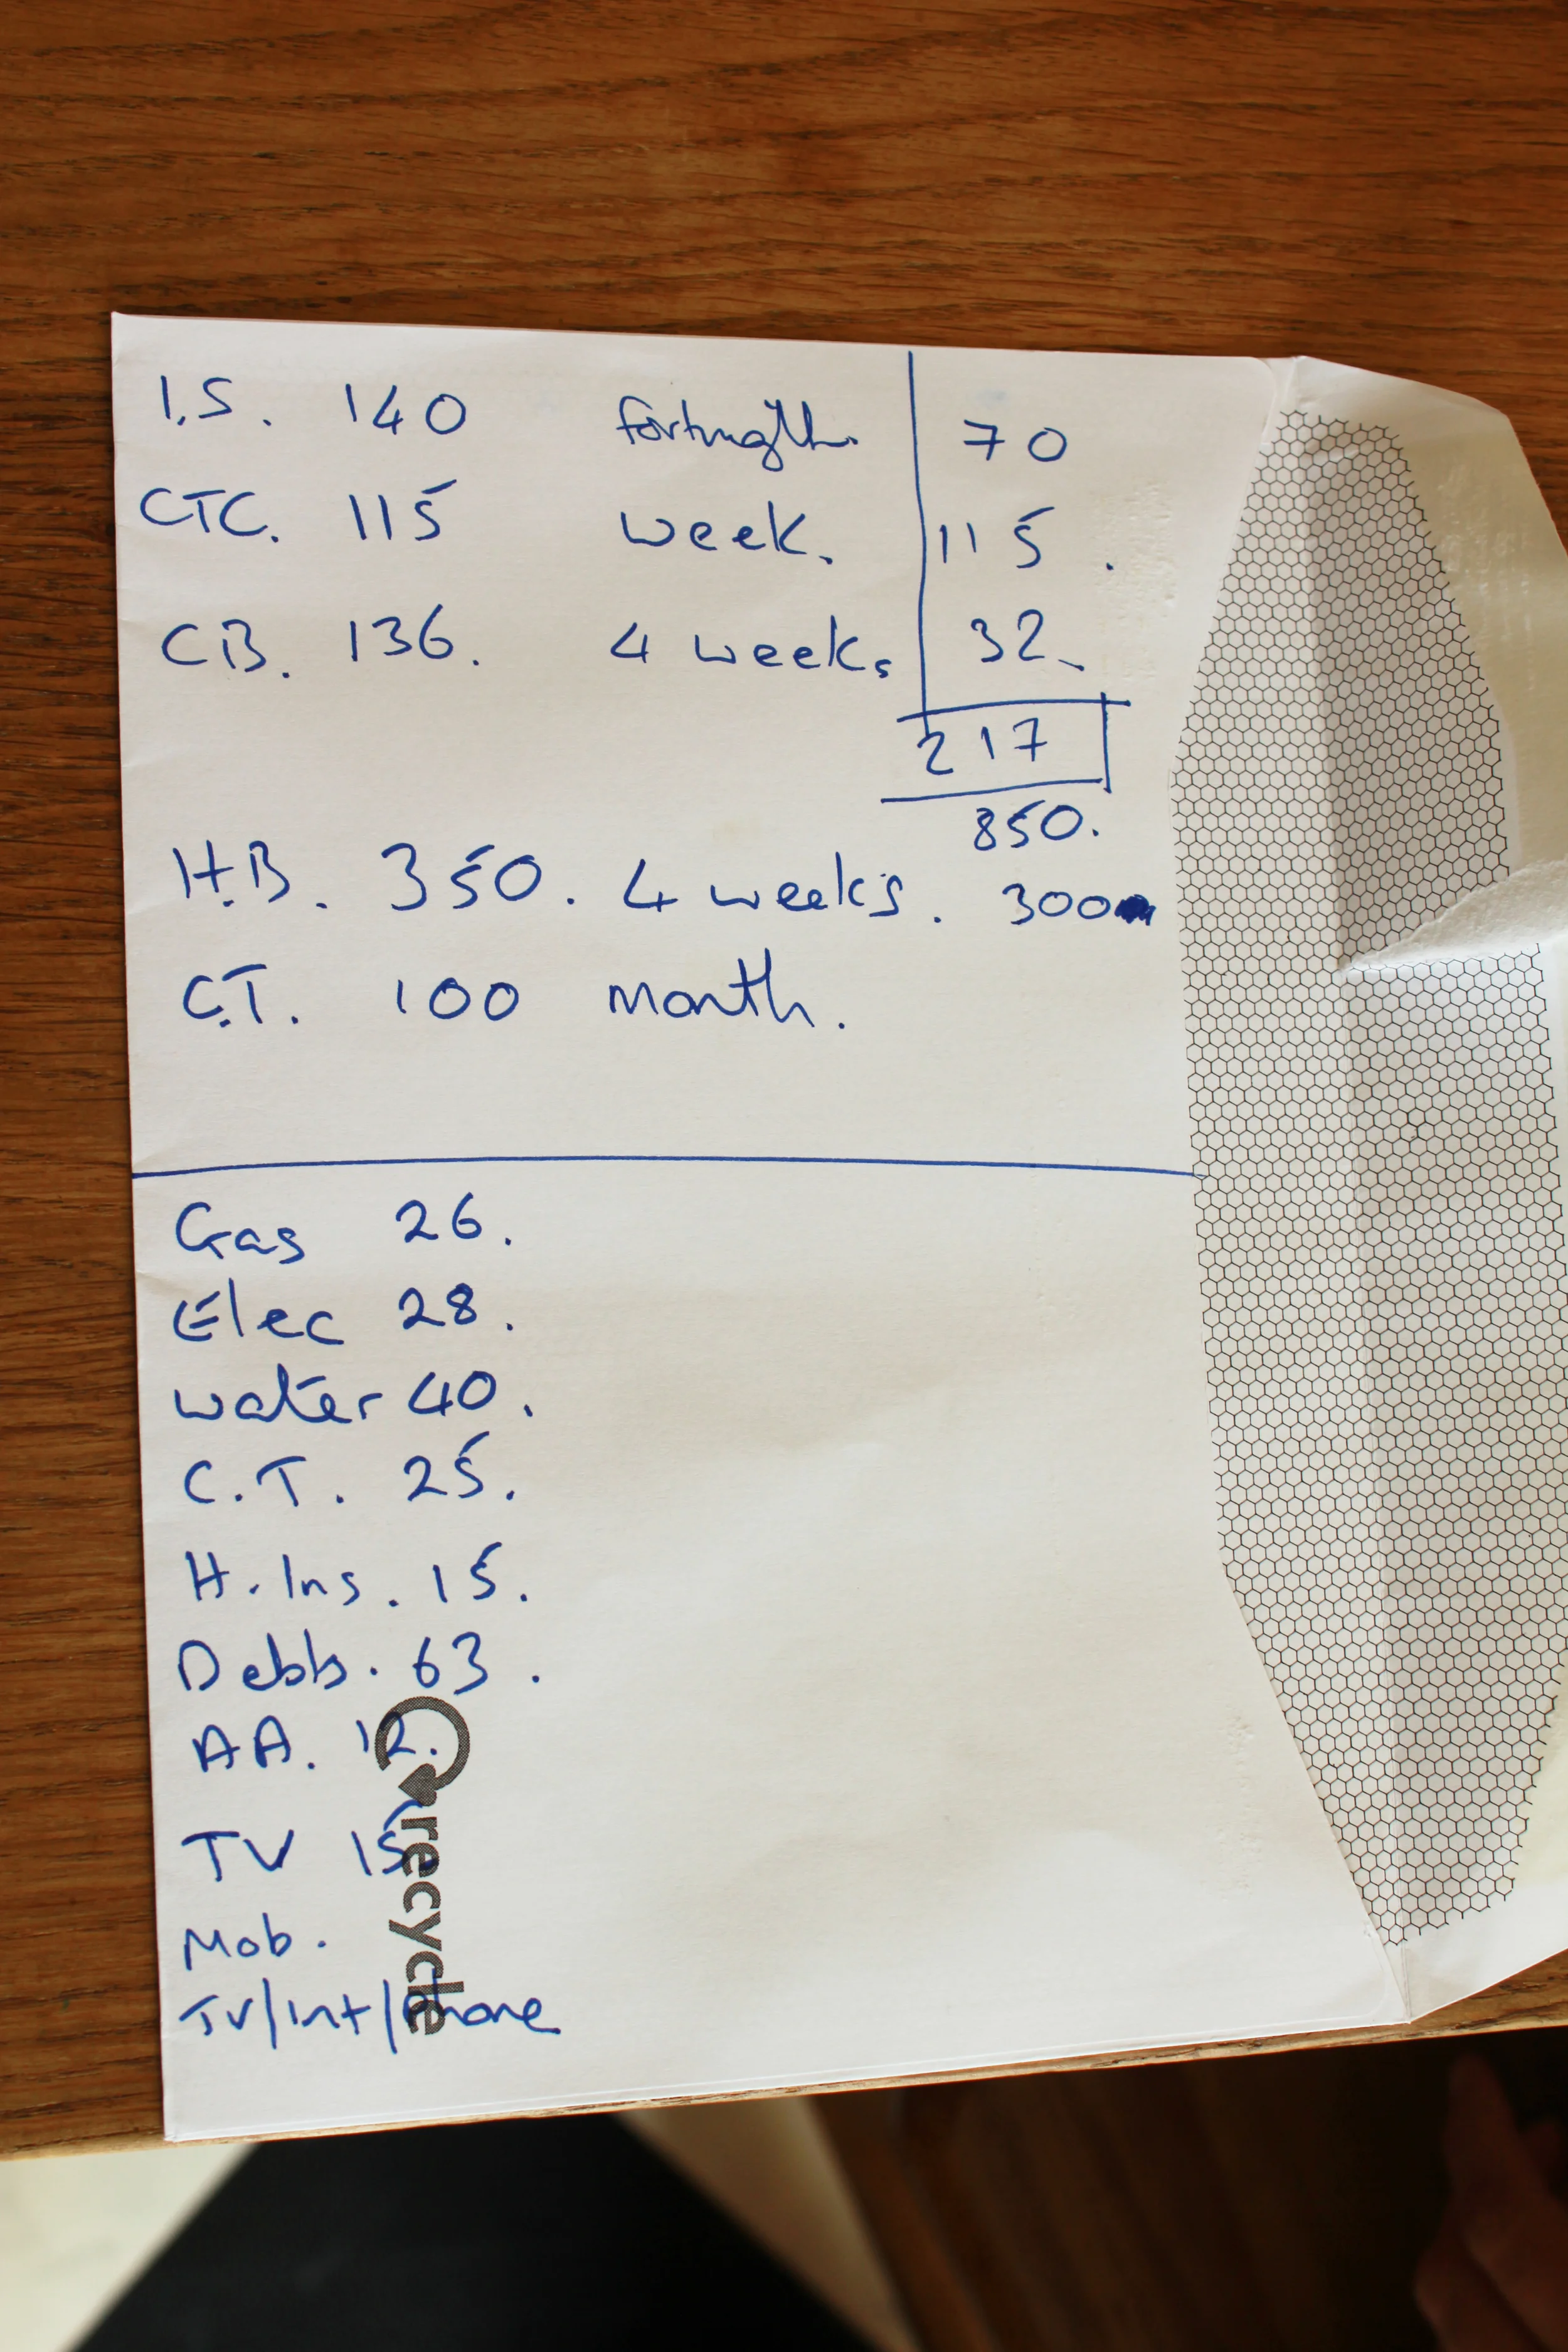 I.S. 140 fortnigth. 70
CTC. 115 week. 115.
CB. 136. 4 weeks 32
217
850.
H.B. 350. 4 weeks. 300
C.T. 100 month.
Gas 26.
Elec 28.
water 40.
C.T. 25.
H. Ins. 15.
Debts. 63.
AA. 12.
TV 15.
Mob.
TV/int/phone
recycle